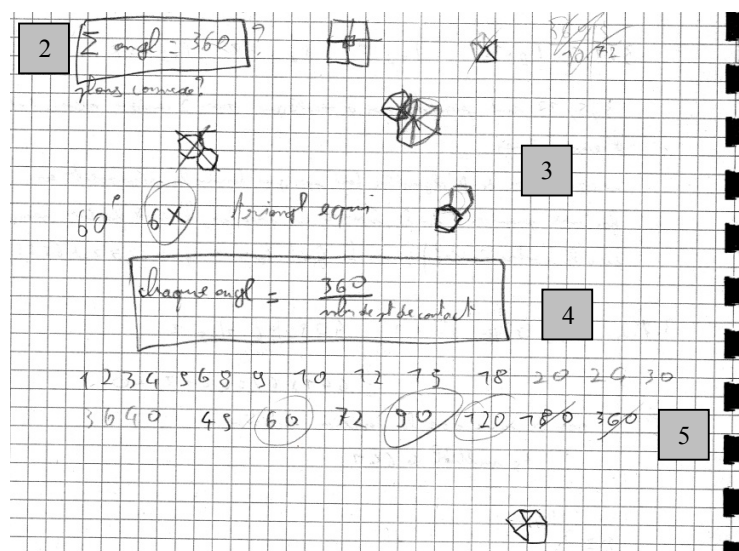 2
Σ angl = 360 ?
72
3
60° 6X triangl equi
chaque angl = 360 / nbre de pt de contact
4
1 2 3 4 5 6 8 9 10 12 15 18 20 24 30
36 40 45 60 72 90 120 180 360
5